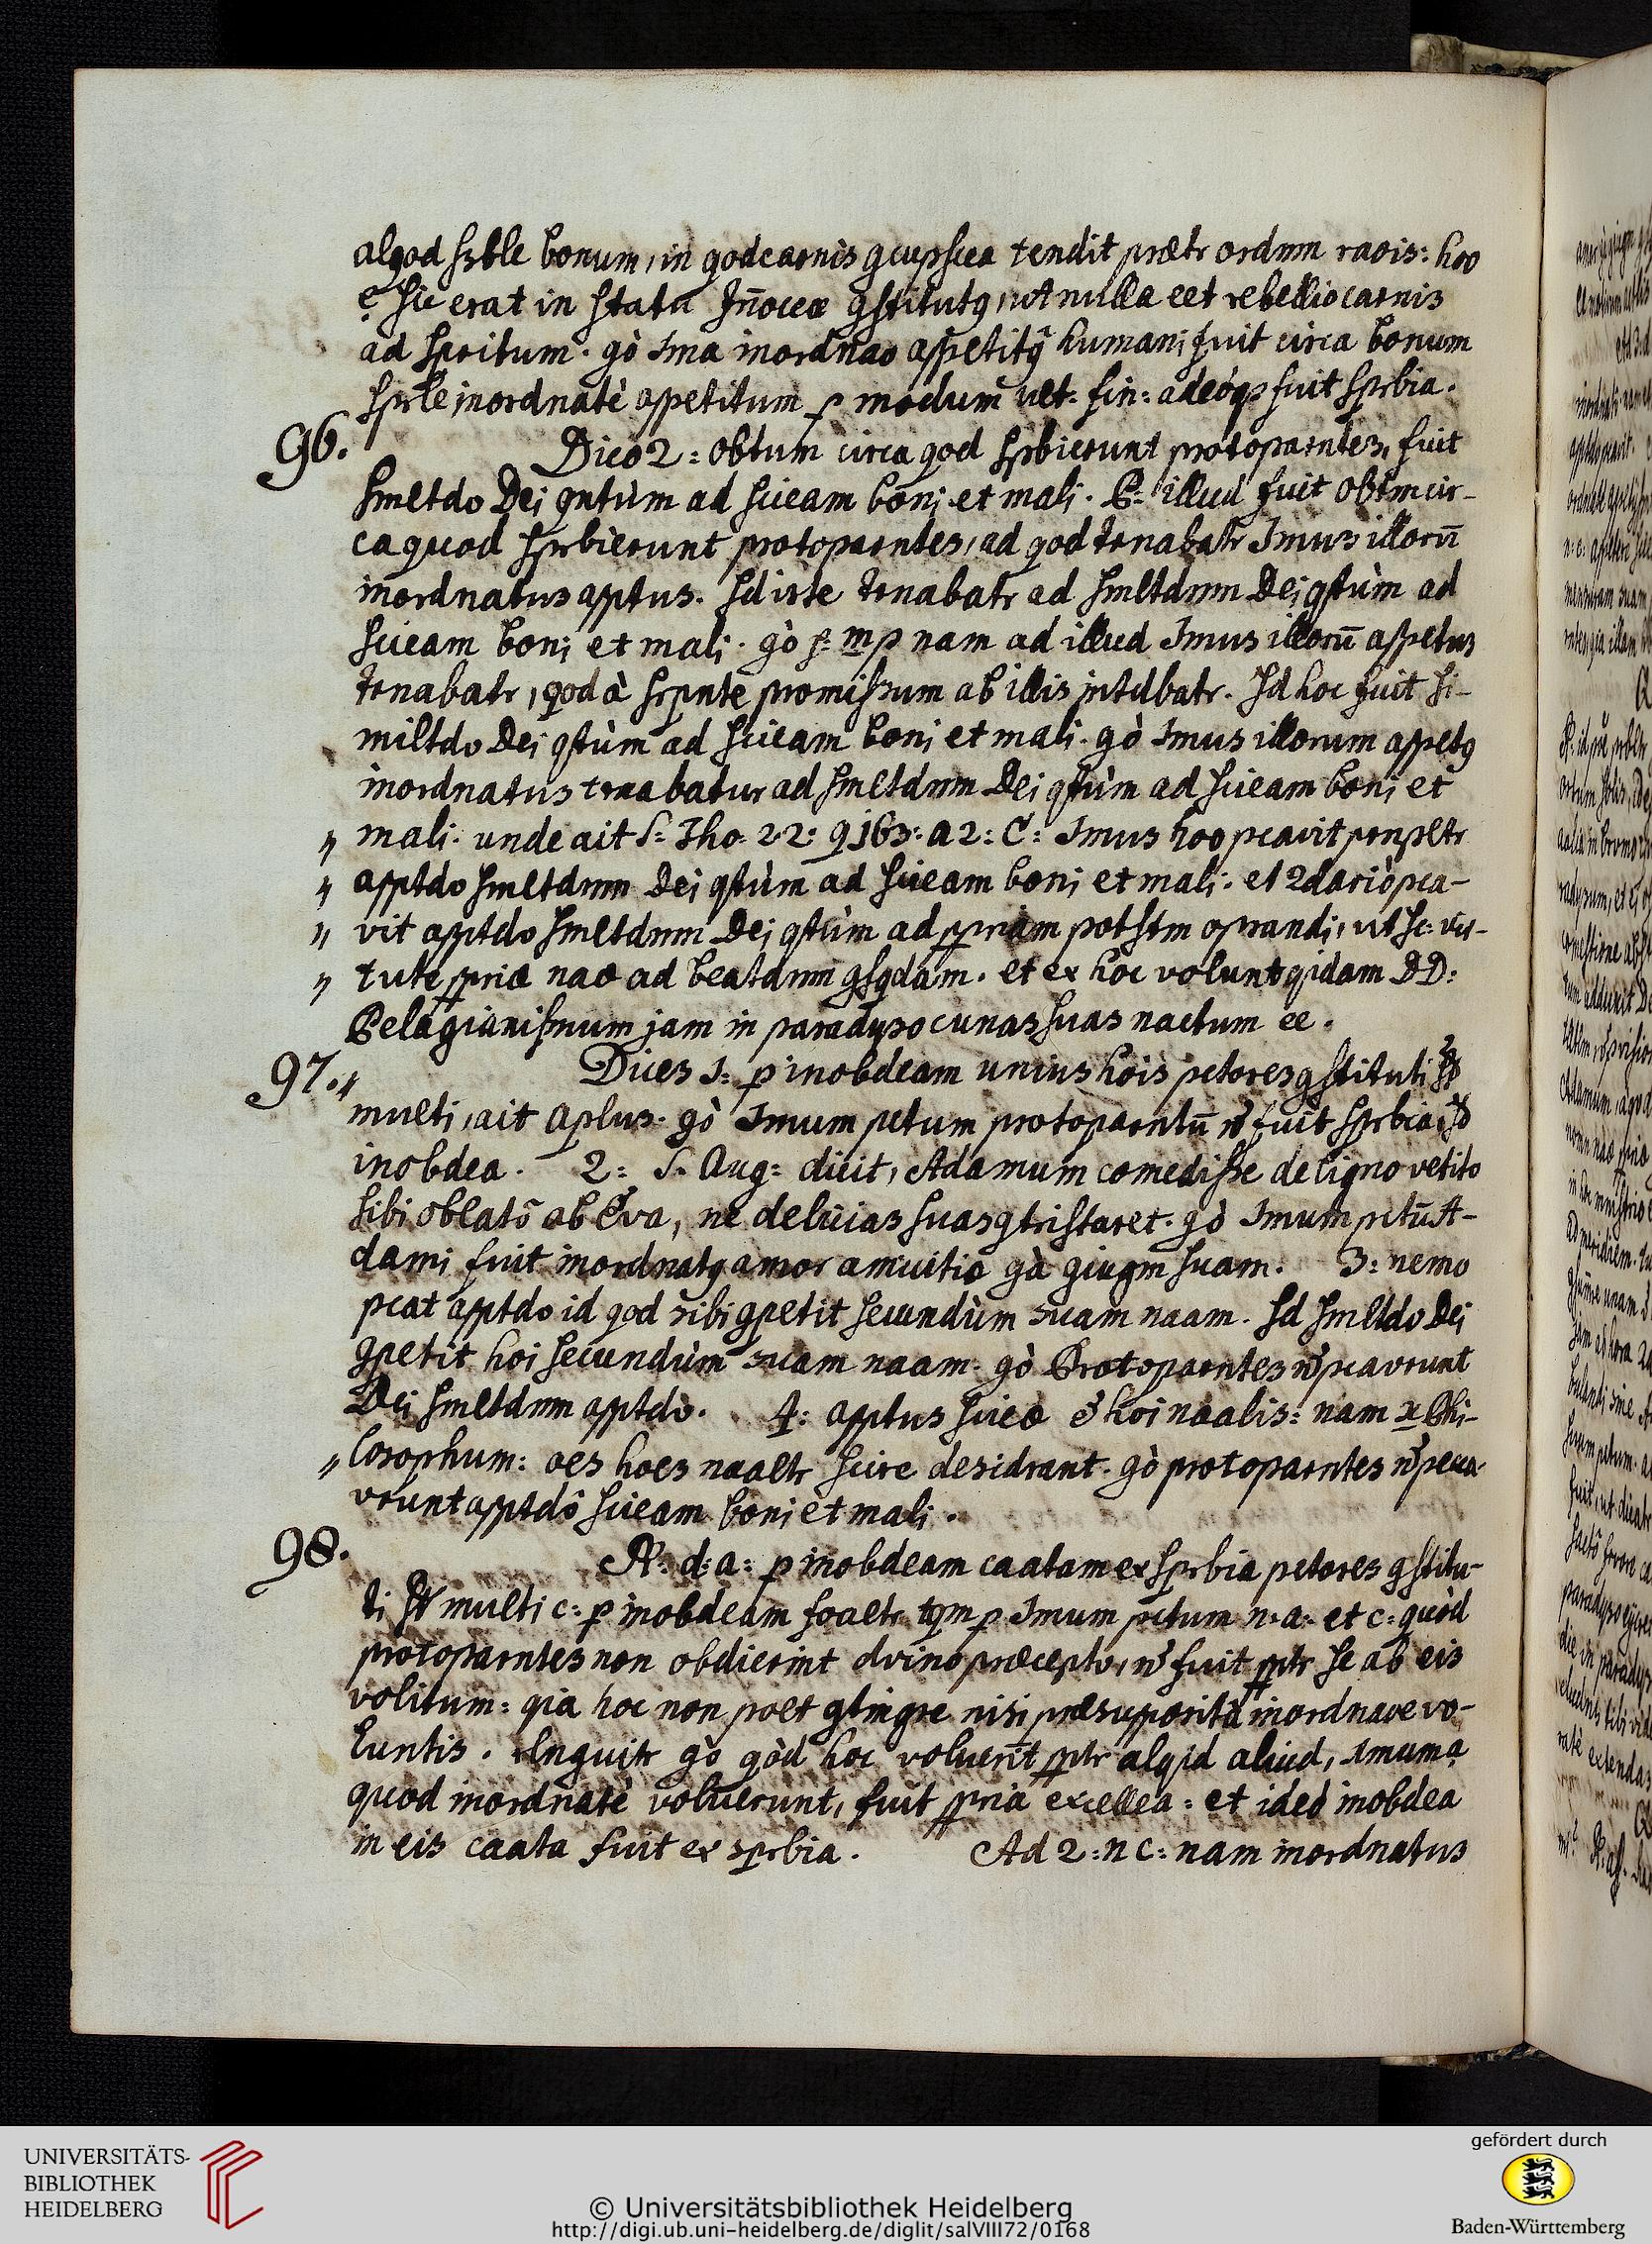 alqod ssble bonum, in qod carnis gcupscea tendit prætr ordnm raois: hoo
ē sic erat in statu Iñocea gstitutq, ut nulla eet rebellio carnis
ad spritum. gò 1ma inordnao appetitq humani fuit circa bonum
sprle inordnatè appetitum p modum ult. fin: adeòqz fuit sprbia.
96. Dico 2: obtum circa qod sprbierunt protoparntes, fuit
smltdo Dei qntùm ad scieam boni et mali. P: illud fuit obtm cir-
ca quod sprbierunt protoparntes, ad qod trnabatr 1mus illorū
inordnatus apptus. sd iste trnabatr ad smltdnm Dei qstùm ad
scieam boni et mali. gò f: mp nam ad illud 1mus illorū appetus
trnabatr, qod à srpnte promissum ab illis intdbatr. sd hoc fuit si-
miltdo Dei qstùm ad scieam boni et mali. gò 1mus illorum appetq
inordnatus trnabatur ad smltdnm Dei qstùm ad scieam boni et
" mali. unde ait S: Tho. 2.2: q 163: a 2: C: 1mus hoo pcavit prnpltr
" apptdo smltdnm Dei qstùm ad scieam boni et mali. et 2dariò pca-
" vit apptdo smltdnm Dei qstùm ad ppriam pothtm oprandi, ut sc: vir-
" tute ppriæ nao ad beatdnm gsqdam. et ex hoc volunt qidam DD:
Pelagianismum jam in paradyso cunas suas nactum ee.
97. " Dices 1: p inobdeam unius hois pctores gstituti st
multi, ait Aplus. gò 1mum pctum protoparntū ñ fuit sprbia, sd
inobdea. 2: S. Aug: dicit, Adamum comedisse de ligno vetito
sibi oblatō ab Eva, ne delicias suas gtristaret. gò 1mum pctū A-
dami fuit inordnatq amor amicitiæ gà giugm suam. 3: nemo
pcat apptdo id qod sibi gpetit secundùm suam naam. sd smltdo Dei
gpetit hoi secundùm suam naam. gò Protoparntes ñ pcavrunt
Dei smltdnm apptdo. 4: apptus scieæ ē hoi naalis: nam x Phi-
" losophum: oes hoes naaltr scire desidrant. gò protoparntes ñ peca-
vrunt apptdo scieam boni et mali.
98. R: d: a: p inobdeam caatam ex sprbia pctores gstitu-
ti st multi c: p inobdeam foaltr tqm p 1mum pctum n: a: et c: quòd
protoparntes non obdierint dvino præcepto, ñ fuit pptr se ab eis
volitum: qia hoc non poet gtingre nisi præsuposità inordnaoe vo-
luntis. Inquitr gò qòd hoc voluerīt pptr alqid aliud, 1mum a
quod inordnatè voluerunt, fuit ppria excellea: et ideò inobdea
in eis caata fuit ex sprbia. Ad 2: n c: nam inordnatus
UNIVERSITÄTS-
BIBLIOTHEK
HEIDELBERG
© Universitätsbibliothek Heidelberg
http://digi.ub.uni-heidelberg.de/diglit/salVIII72/0168
gefördert durch
Baden-Württemberg